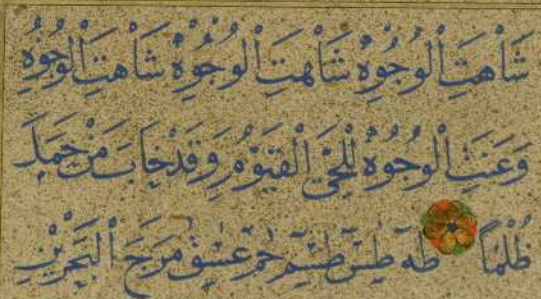 شَاهَتِ الْوُجُوهُ شَاهَتِ الْوُجُوهُ شَاهَتِ الْوُجُوهُ
وَعَنَتِ الْوُجُوهُ لِلْحَيِّ الْقَيُّومِ وَقَدْ خَابَ مَنْ حَمَلَ
ظُلْمًا طه طس طسم حم عسق مَرَجَ الْبَحْرَيْنِ